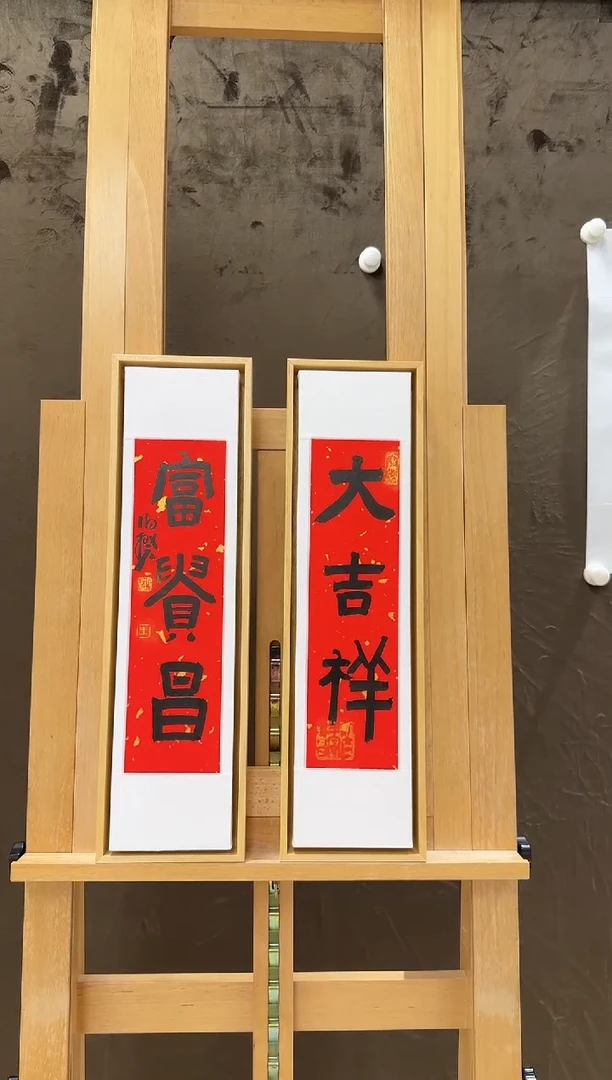 大吉祥
富貴昌